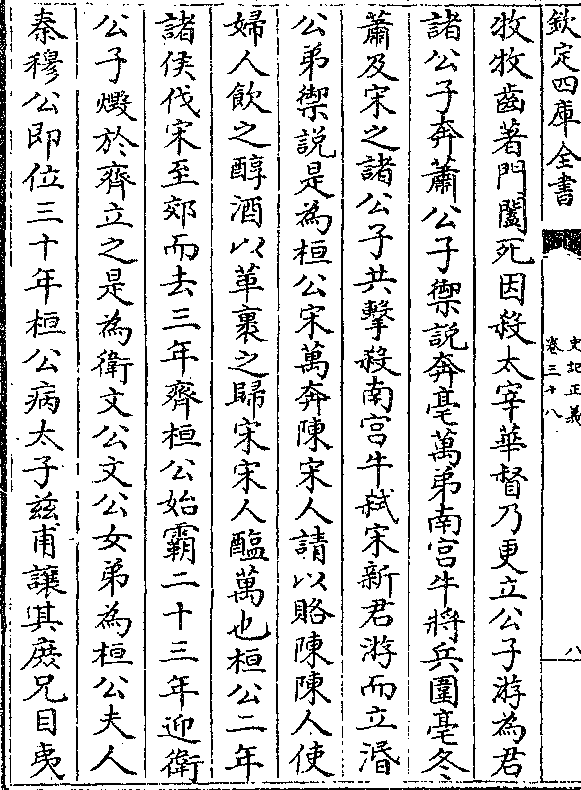 欽定四庫全書
史記正義
卷三十八
八
牧牧齒著門闔死因殺太宰華督乃更立公子游為君
諸公子奔蕭公子禦說奔亳萬弟南宮牛將兵圍亳冬
蕭及宋之諸公子共擊殺南宮牛弒宋新君游而立湣
公弟禦說是為桓公宋萬奔陳宋人請以賂陳陳人使
婦人飲之醇酒以革裹之歸宋宋人醢萬也桓公二年
諸侯伐宋至郊而去三年齊桓公始霸二十三年迎衛
公子燬於齊立之是為衛文公文公女弟為桓公夫人
秦穆公即位三十年桓公病太子兹甫讓其庶兄目夷